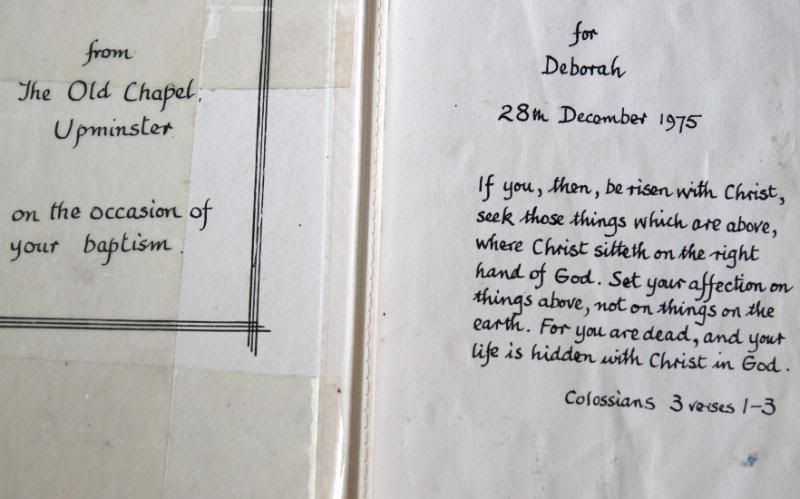 from
The Old Chapel,
Upminster
on the occasion of
your baptism.
for
Deborah
28th December 1975
If you, then, be risen with Christ,
seek those things which are above,
where Christ sitteth on the right
hand of God. Set your affection on
things above, not on things on the
earth. For you are dead, and your
life is hidden with Christ in God.
Colossians 3 verses 1-3